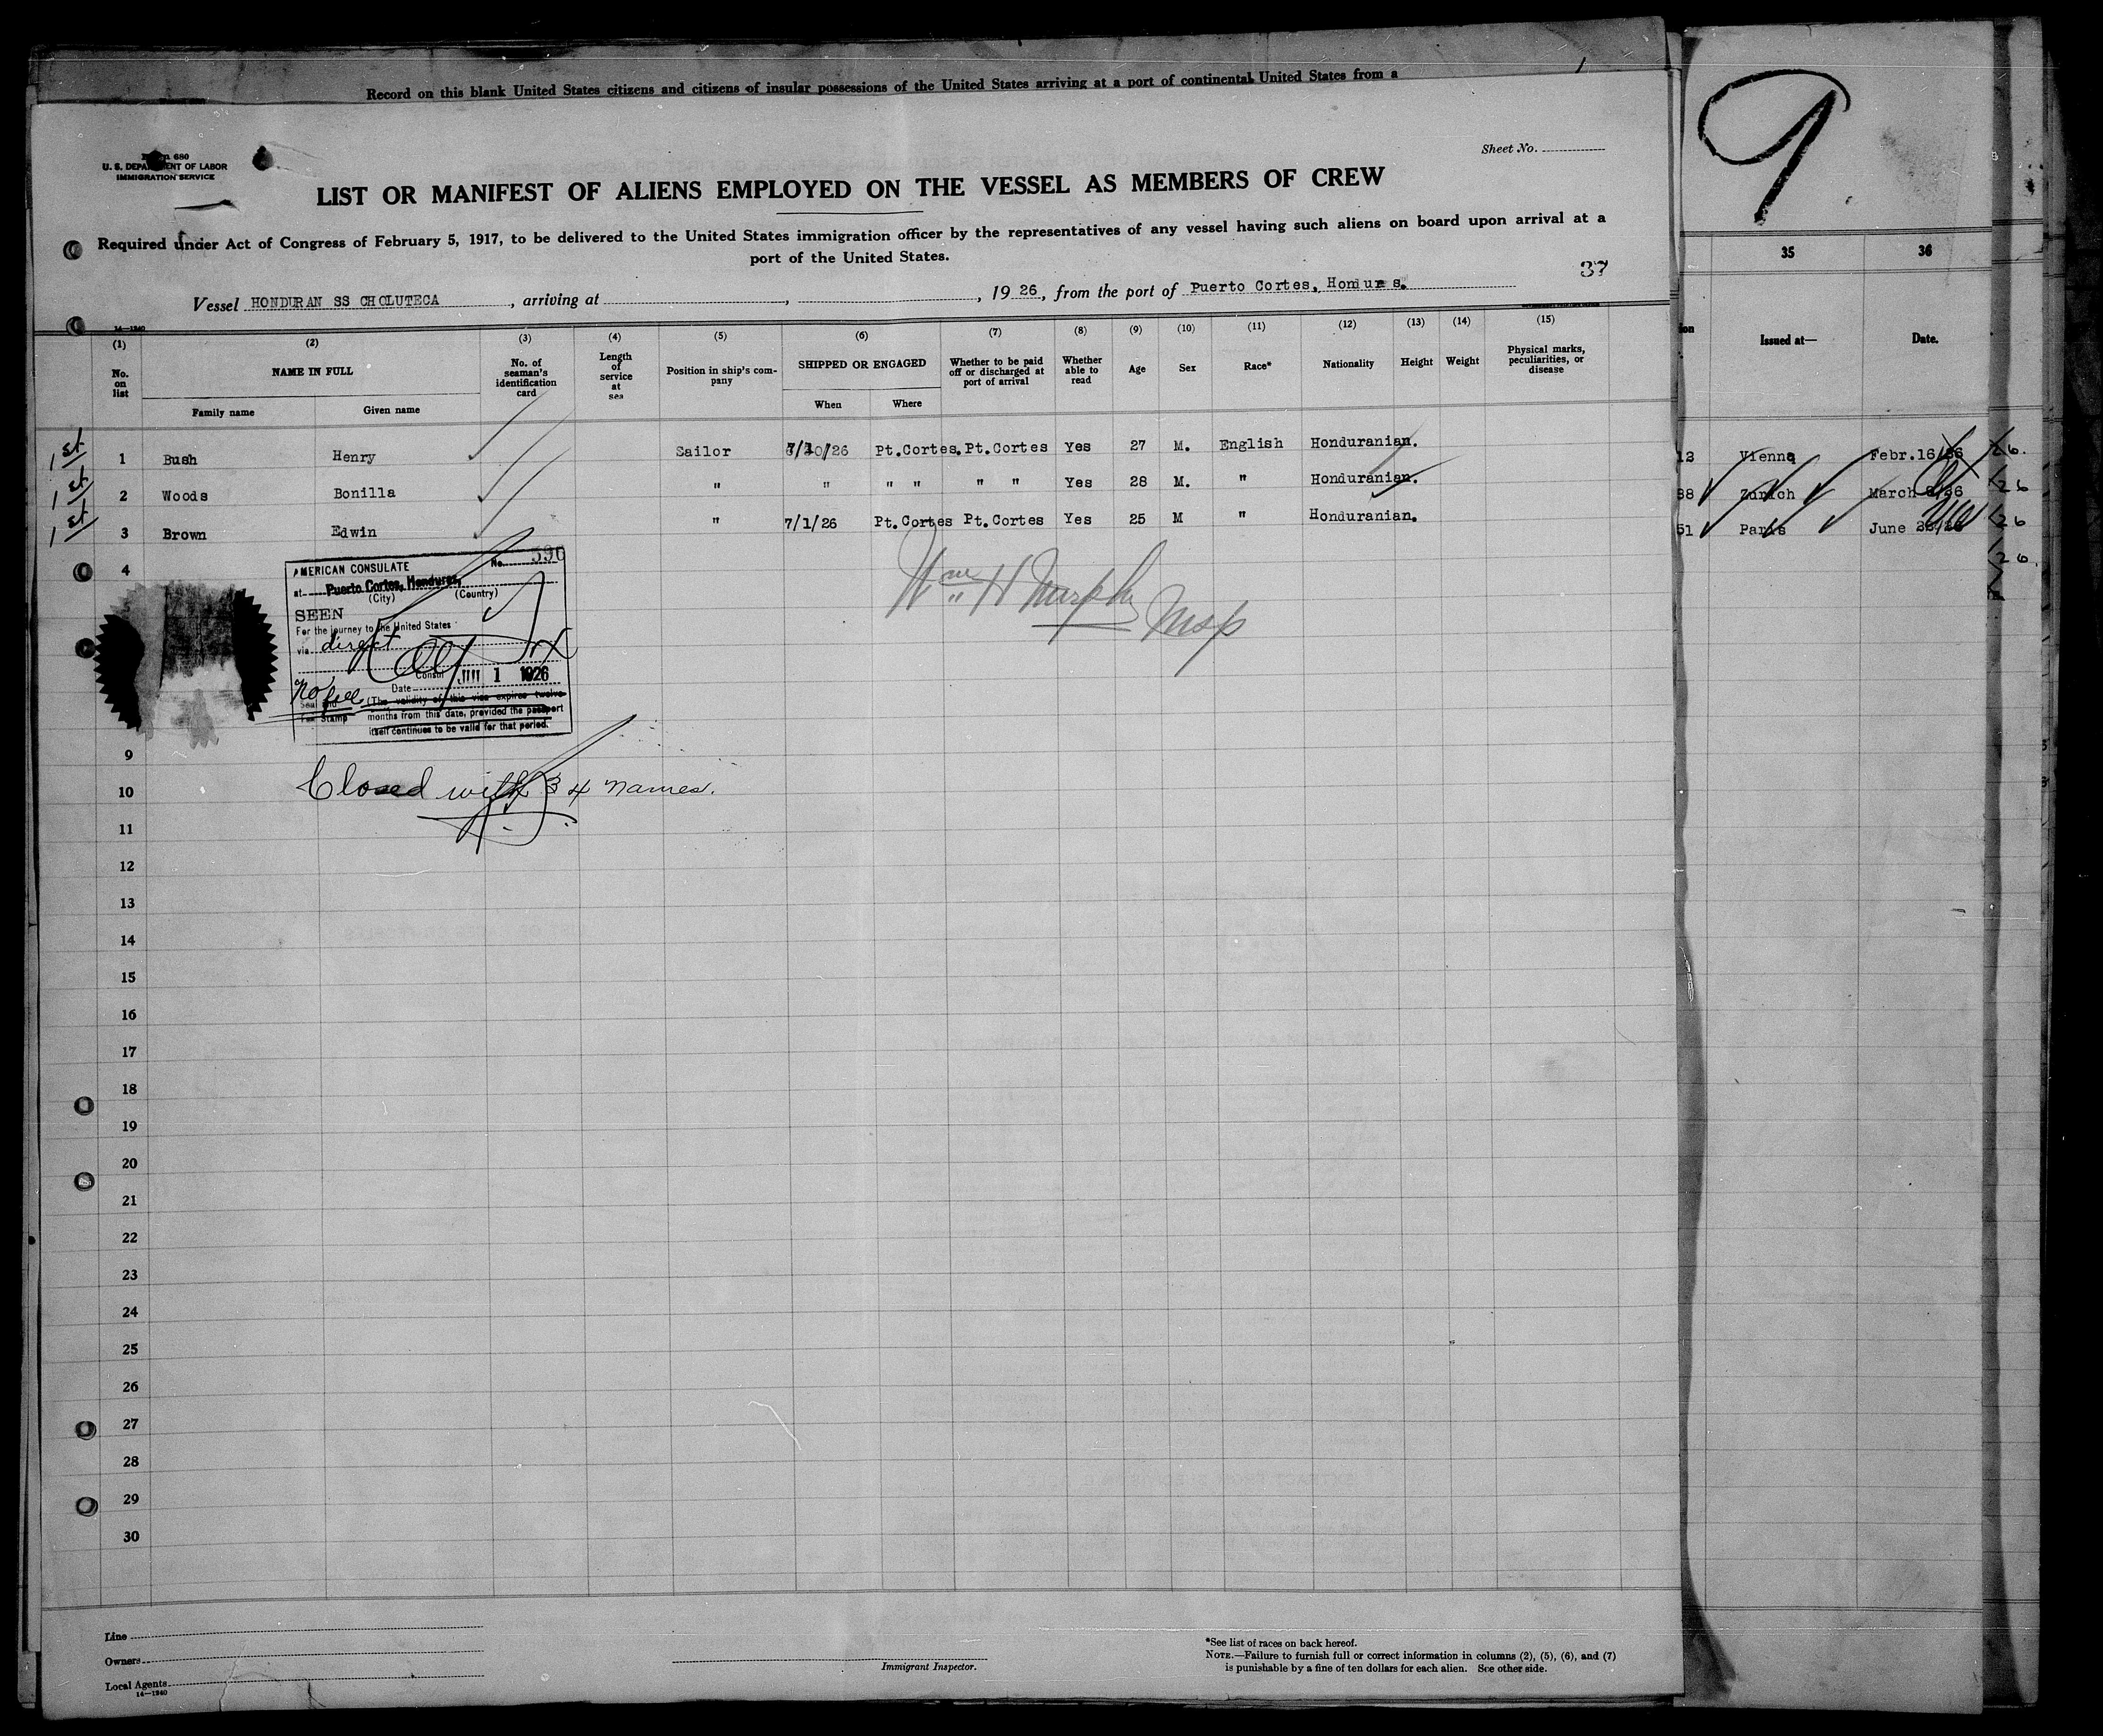 Record on this blank United States citizens and citizens of insular possessions of the United States arriving at a port of continental United States from a
680
U. S. DEPARTMENT OF LABOR
IMMIGRATION SERVICE
Sheet No.
LIST OR MANIFEST OF ALIENS EMPLOYED ON THE VESSEL AS MEMBERS OF CREW
Required under Act of Congress of February 5, 1917, to be delivered to the United States immigration officer by the representatives of any vessel having such aliens on board upon arrival at a
port of the United States.
37
Vessel HONDURAN SS CHOLUTECA, arriving at , , 19 26, from the port of Puerto Cortes, Honduras.
14—1240
(1) (2) (3) (4) (5) (6) (7) (8) (9) (10) (11) (12) (13) (14) (15)
No. on list
NAME IN FULL
Family name
Given name
No. of seaman's identification card
Length of service at sea
Position in ship's company
SHIPPED OR ENGAGED
When
Where
Whether to be paid off or discharged at port of arrival
Whether able to read
Age
Sex
Race*
Nationality
Height
Weight
Physical marks, peculiarities, or disease
1st 1 Bush Henry Sailor /26 Pt.Cortes. Pt.Cortes Yes 27 M. English Honduranian.
1st 2 Woods Bonilla " " " " " " Yes 28 M. " Honduranian.
1st 3 Brown Edwin " 7/1/26 Pt.Cortes Pt.Cortes Yes 25 M " Honduranian.
4
AMERICAN CONSULATE No. 590
at Puerto Cortes, Honduras,
(City) (Country)
SEEN
For the journey to the United States
via direct
Consul
Date 1 1926
No fee
Seal and
Fee Stamp
(The validity of this visa expires twelve
months from this date, provided the passport
itself continues to be valid for that period.
Wm H Murphy Insp
9
Closed with 34 names.
10
11
12
13
14
15
16
17
18
19
20
21
22
23
24
25
26
27
28
29
30
Line
Owners
Local Agents
14—1240
Immigrant Inspector.
*See list of races on back hereof.
NOTE.—Failure to furnish full or correct information in columns (2), (5), (6), and (7)
is punishable by a fine of ten dollars for each alien. See other side.
9
35 36
ion Issued at— Date.
Vienna Febr.16/26 26.
88 Zurich March /26 26
51 Paris June /26 26
26